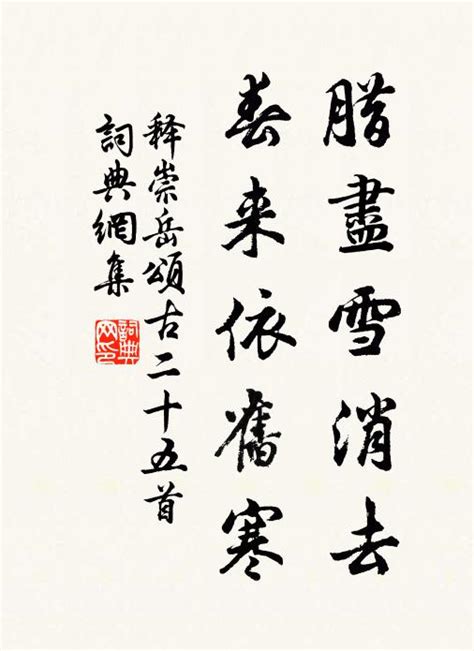 腊盡雪消去
春来依舊寒
释崇岳頌古二十五首
詞典網集
詞典网印